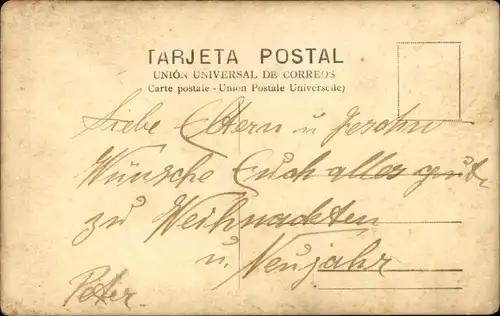 TARJETA POSTAL
UNIÓN UNIVERSAL DE CORREOS
Carte postale - Union Postale Universelle)
Liebe Eltern u
Wünsche Euch alles gut.
zu Weihnachten
u. Neujahr
Peter.